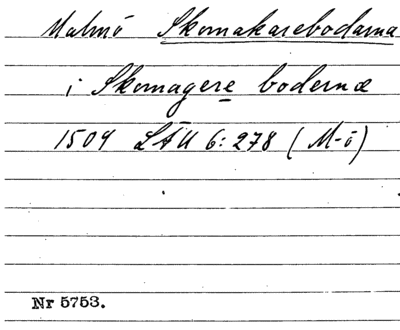 Malmö Skomakarebodarna
i Skomagere bodernæ
1509 LÄU 6:278 (M-ö)
Nr 5753.